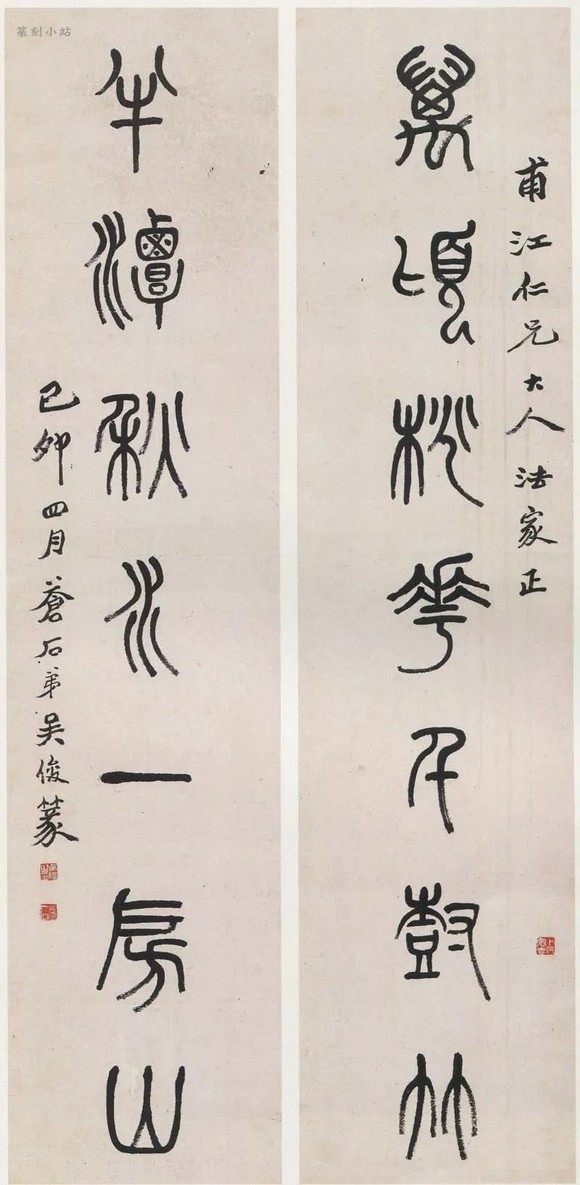 篆刻小站
甫江仁兄大人法家正
萬頃松華千尌竹
半潭秋水一房山
己卯四月蒼石弟吳俊篆